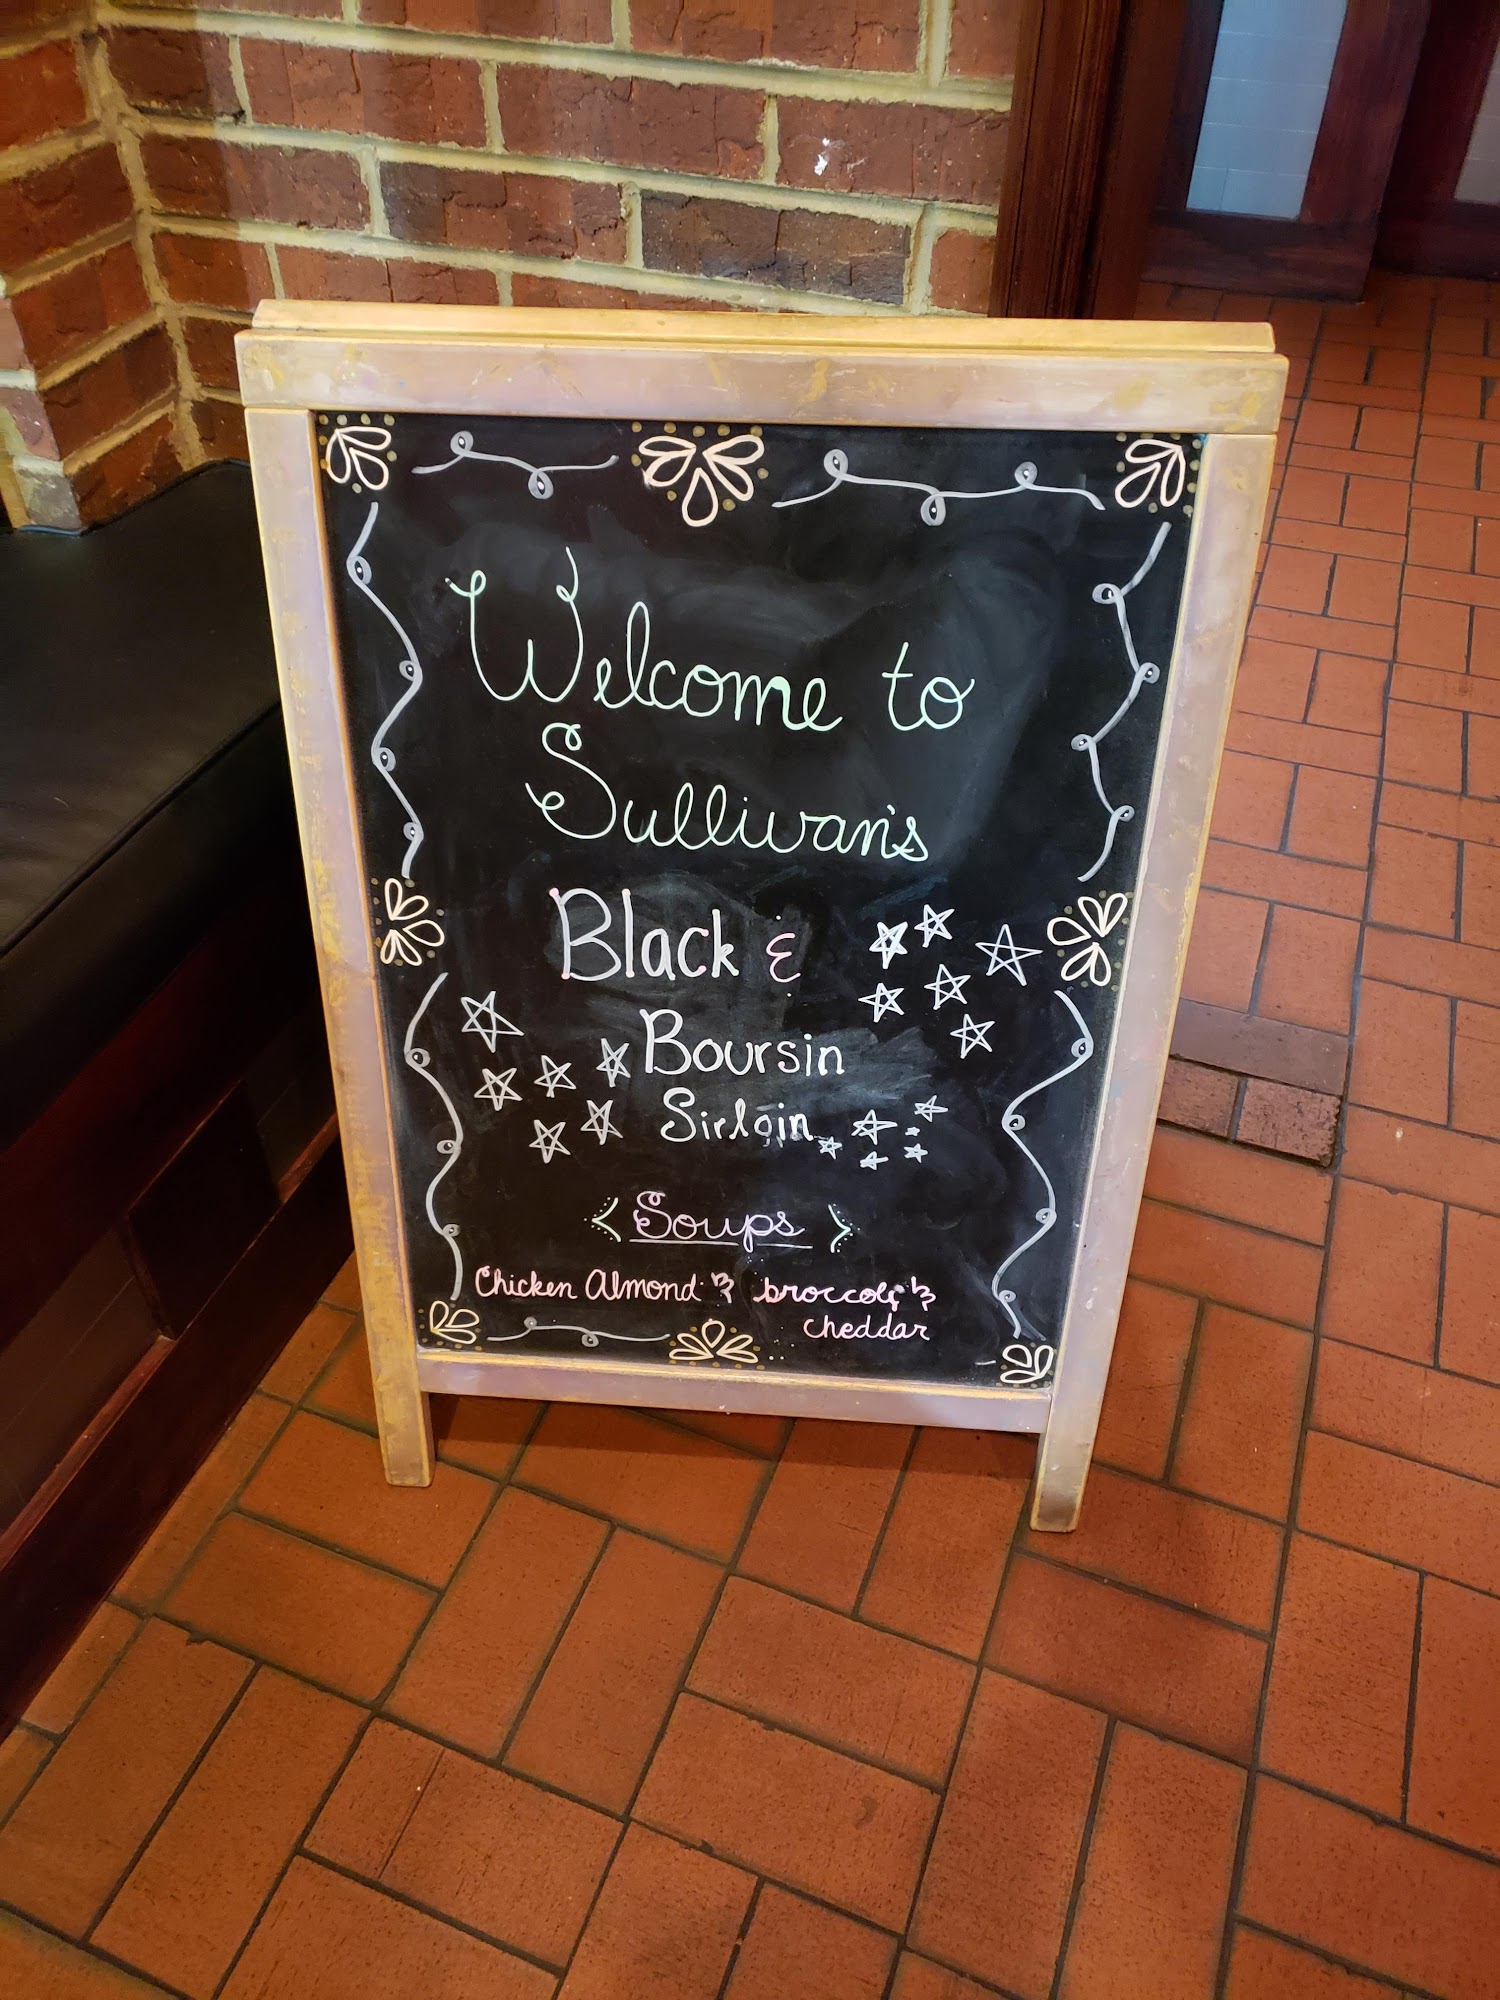 Welcome to
Sullivan's
Black &
Boursin
Sirloin
Soups
Chicken Almond & broccoli &
cheddar